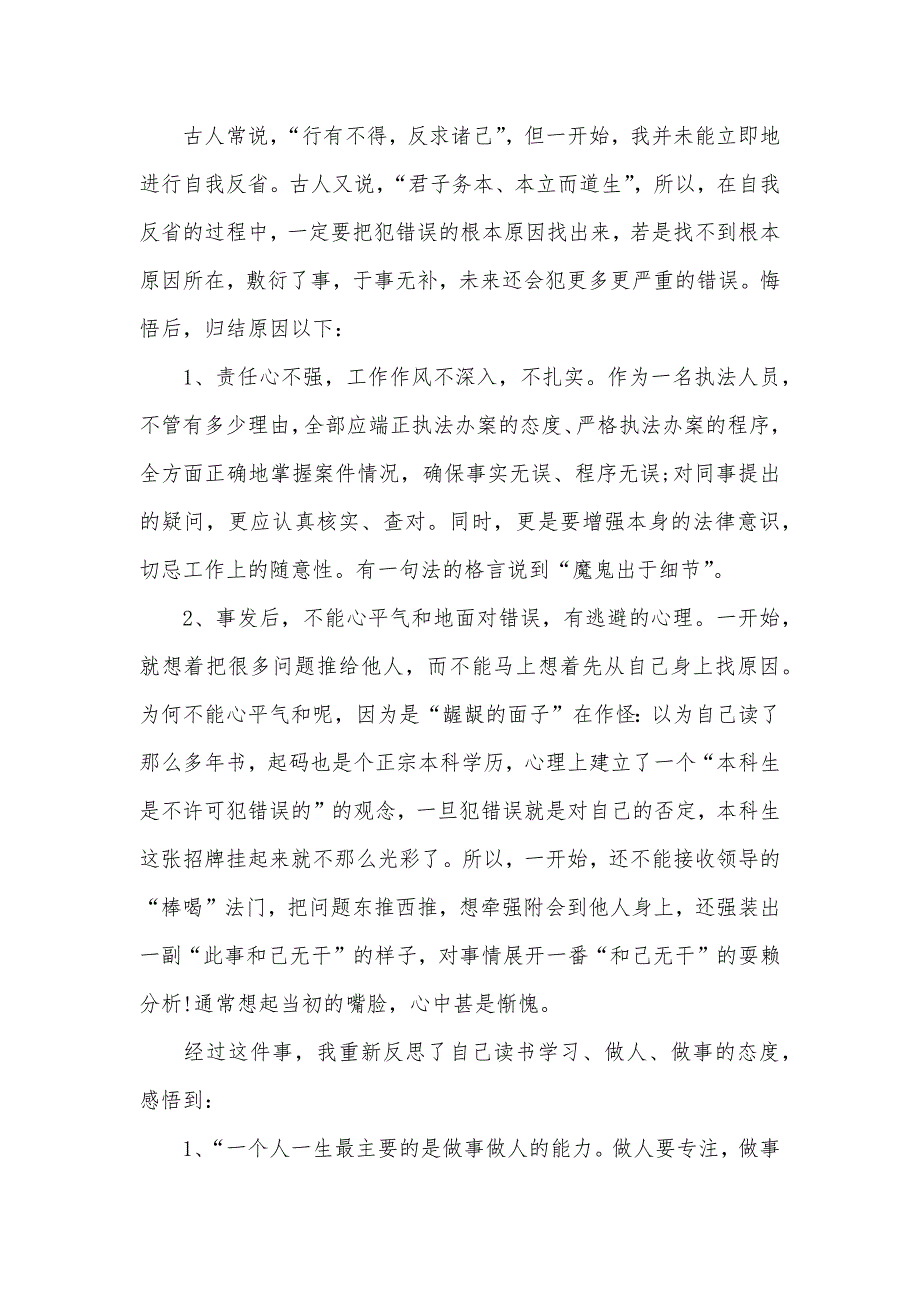 古人常说，“行有不得，反求诸己”，但一开始，我并未能立即地
进行自我反省。古人又说，“君子务本、本立而道生”，所以，在自我
反省的过程中，一定要把犯错误的根本原因找出来，若是找不到根本
原因所在，敷衍了事，于事无补，未来还会犯更多更严重的错误。悔
悟后，归结原因以下：
1、责任心不强，工作作风不深入，不扎实。作为一名执法人员，
不管有多少理由，全部应端正执法办案的态度、严格执法办案的程序，
全方面正确地掌握案件情况，确保事实无误、程序无误;对同事提出
的疑问，更应认真核实、查对。同时，更是要增强本身的法律意识，
切忌工作上的随意性。有一句法的格言说到“魔鬼出于细节”。
2、事发后，不能心平气和地面对错误，有逃避的心理。一开始，
就想着把很多问题推给他人，而不能马上想着先从自己身上找原因。
为何不能心平气和呢，因为是“龌龊的面子”在作怪：以为自己读了
那么多年书，起码也是个正宗本科学历，心理上建立了一个“本科生
是不许可犯错误的”的观念，一旦犯错误就是对自己的否定，本科生
这张招牌挂起来就不那么光彩了。所以，一开始，还不能接收领导的
“棒喝”法门，把问题东推西推，想牵强附会到他人身上，还强装出
一副“此事和己无干”的样子，对事情展开一番“和己无干”的耍赖
分析!通常想起当初的嘴脸，心中甚是惭愧。
经过这件事，我重新反思了自己读书学习、做人、做事的态度，
感悟到：
1、“一个人一生最主要的是做事做人的能力。做人要专注，做事